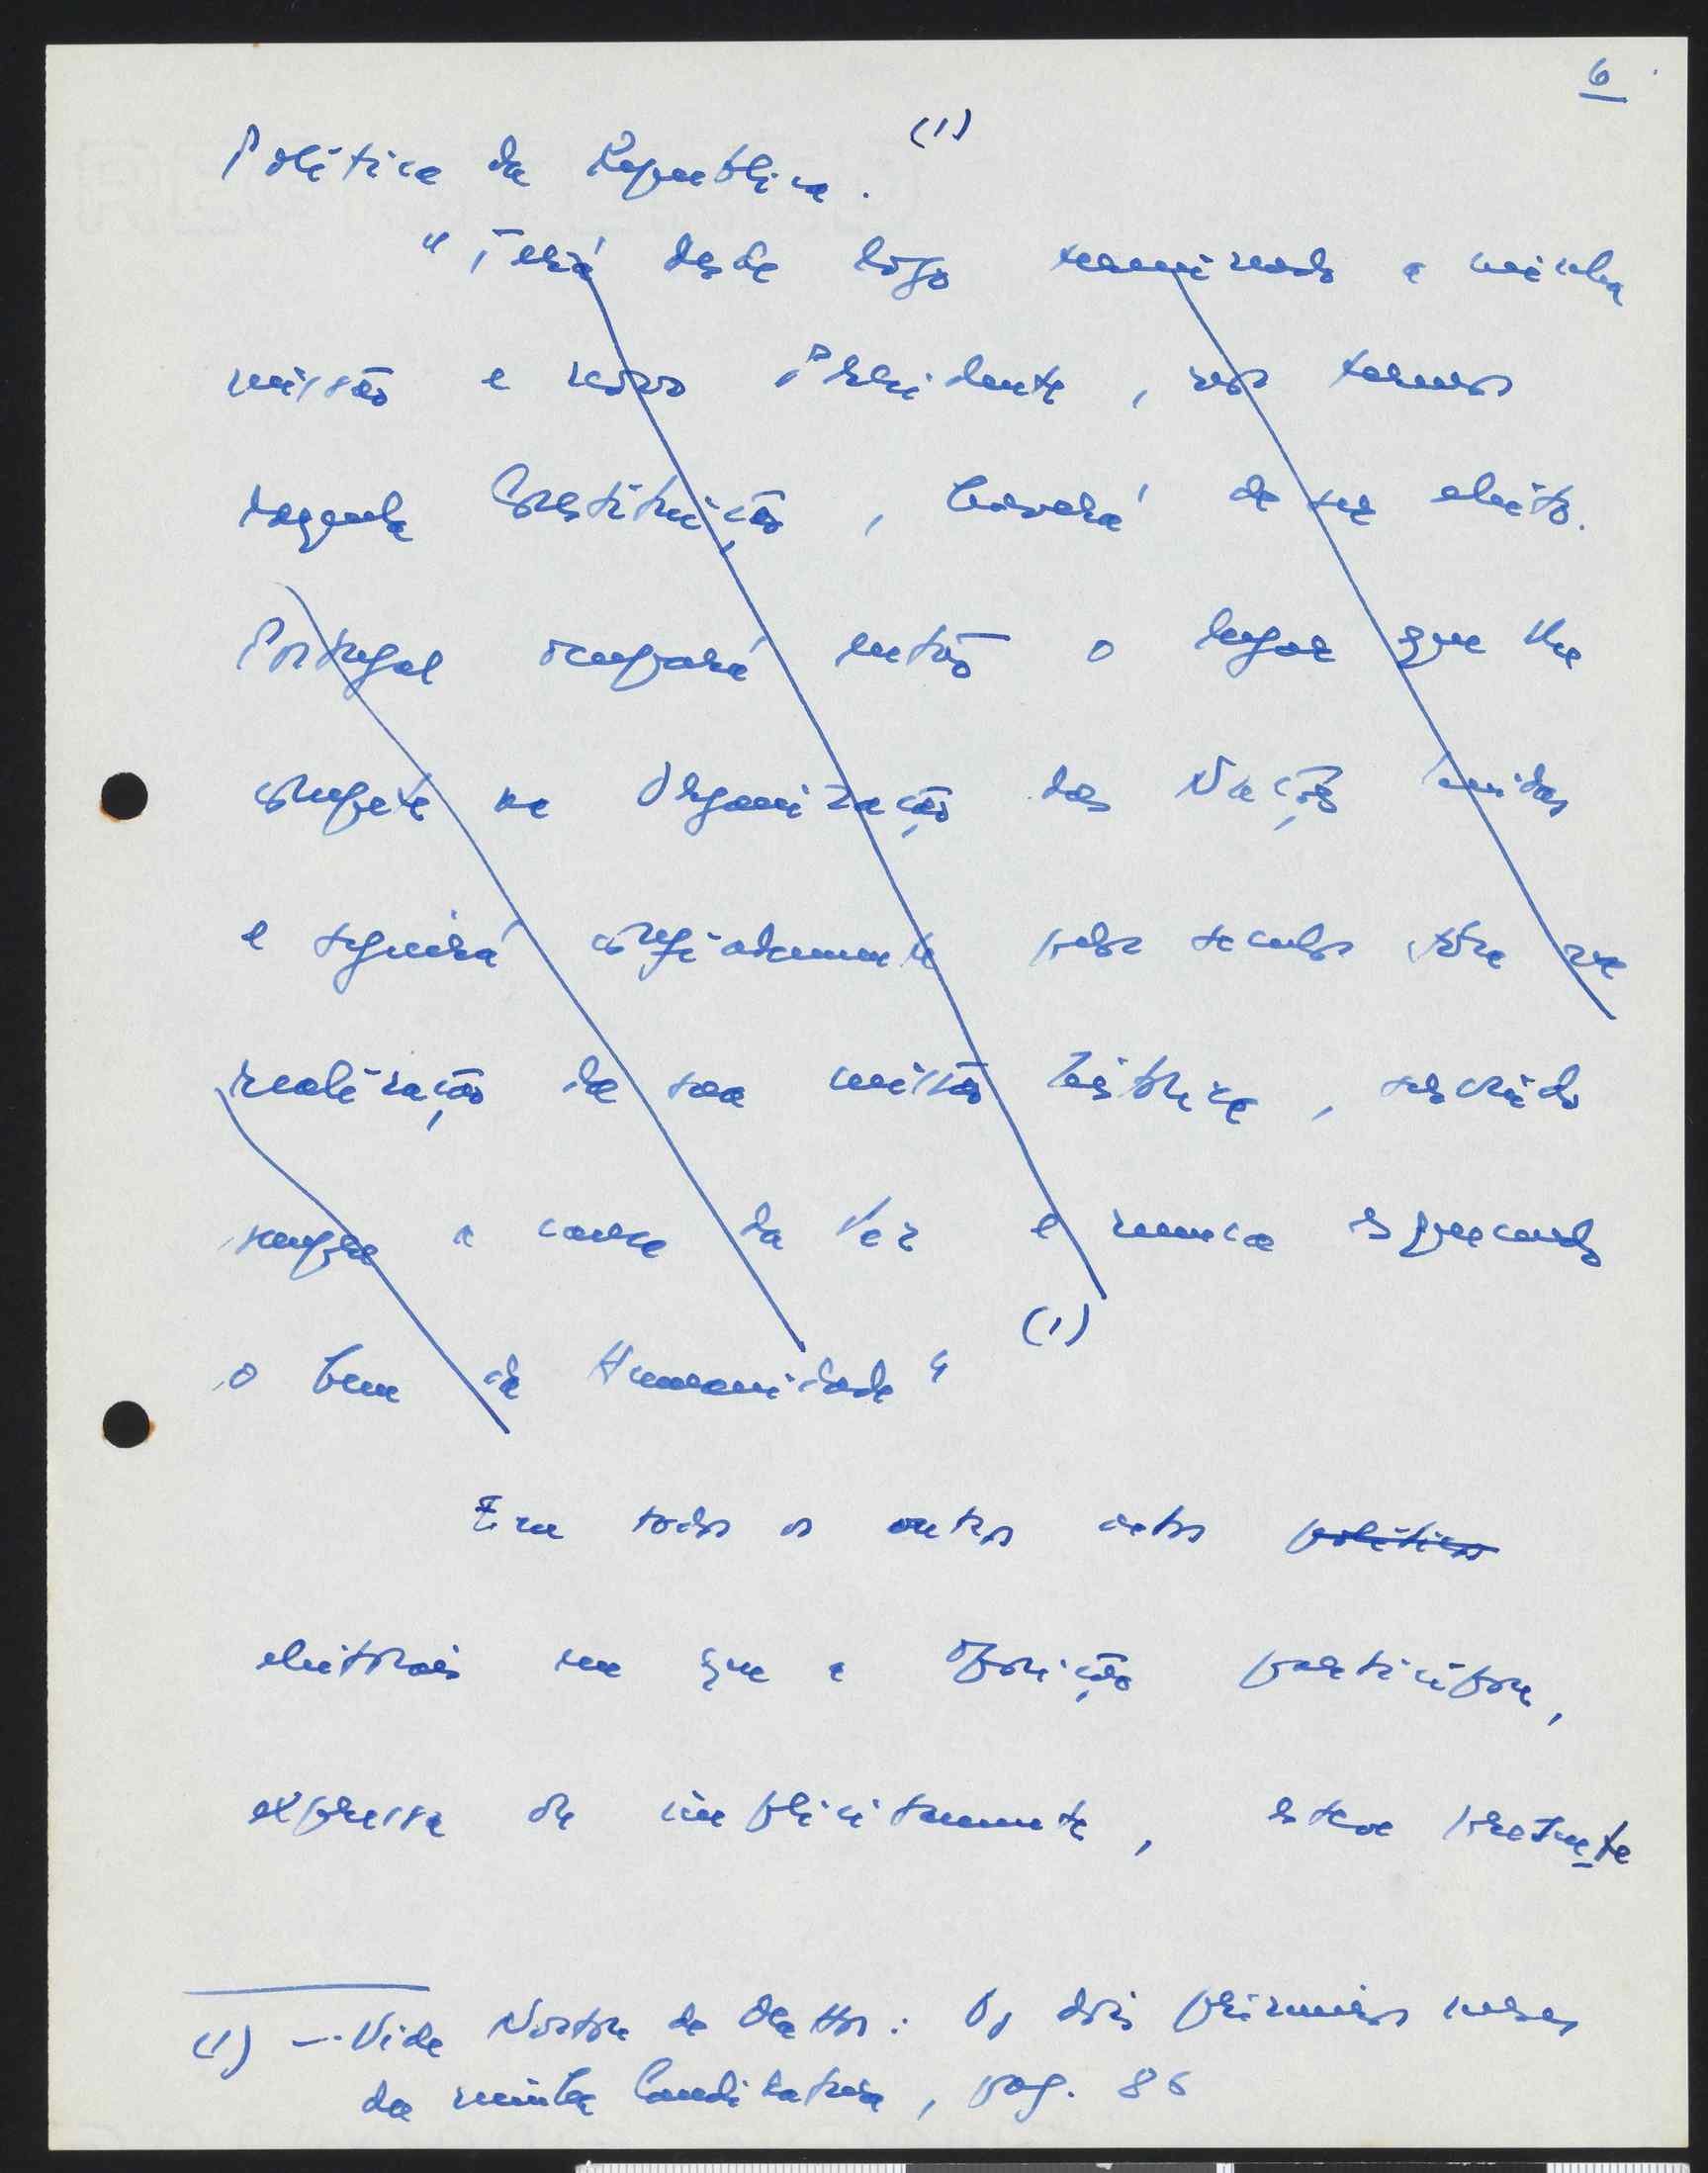 6
Política da Republica. (1)
"Terá desde logo terminado a minha
missão e novo Presidente, nos termos
daquela Constituição, haverá de ser eleito.
Portugal ocupará então o lugar que lhe
compete na Organização das Nações Unidas
e seguirá confiadamente pelos seculos fóra na
realização da sua missão historica, servindo
sempre a causa da Paz e nunca esquecendo
o bem da Humanidade" (1)
Em todos os outros actos politicos
eleitorais em que a oposição participou,
expressa ou implicitamente, esteve presente
(1) — Vide Norton de Mattos: Os dois primeiros meses
da minha Candidatura, pag. 86